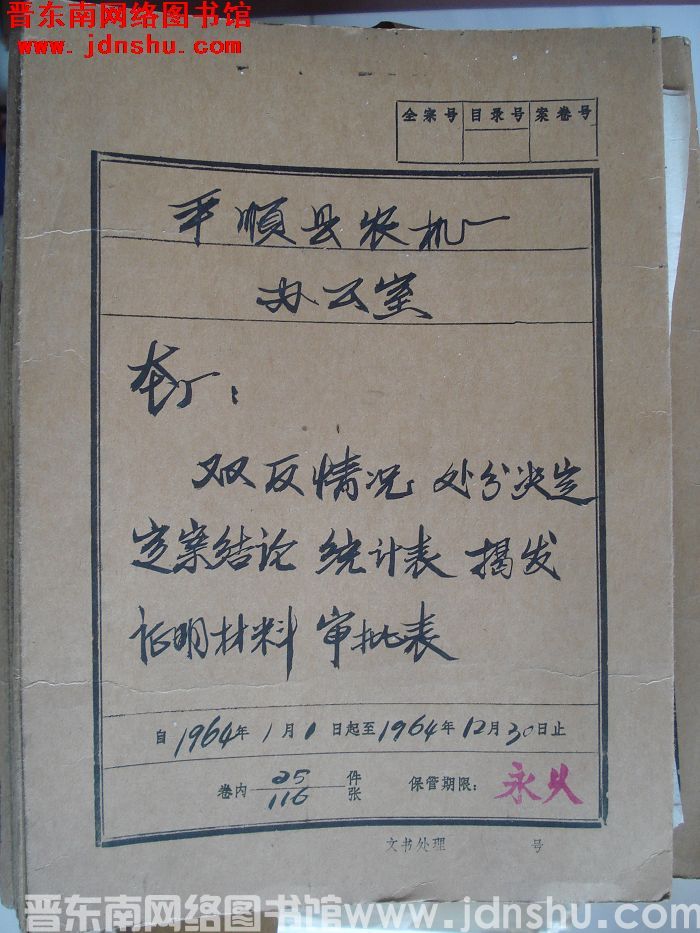 晋东南网络图书馆
www.jdnshu.com
全宗号 目录号 案卷号
平順县农机厂
办公室
本厂：
双反情况 处分决定
定案结论 统计表 揭发
证明材料 审批表
自1964年1月1日起至1964年12月30日止
卷内 25件 116张 保管期限：永久
文书处理 号
晋东南网络图书馆www.jdnshu.com